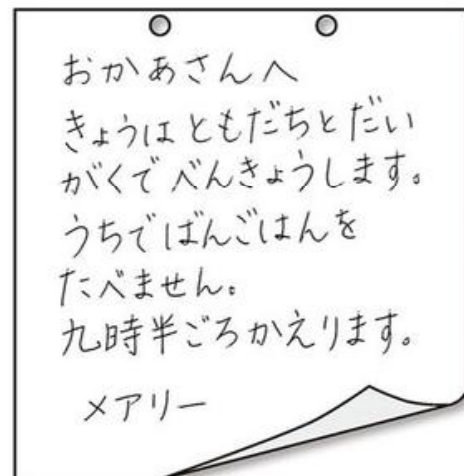 おかあさんへ
きょうは ともだちと だい
がくで べんきょうします。
うちで ばんごはんを
たべません。
九時半ごろ かえります。
メアリー